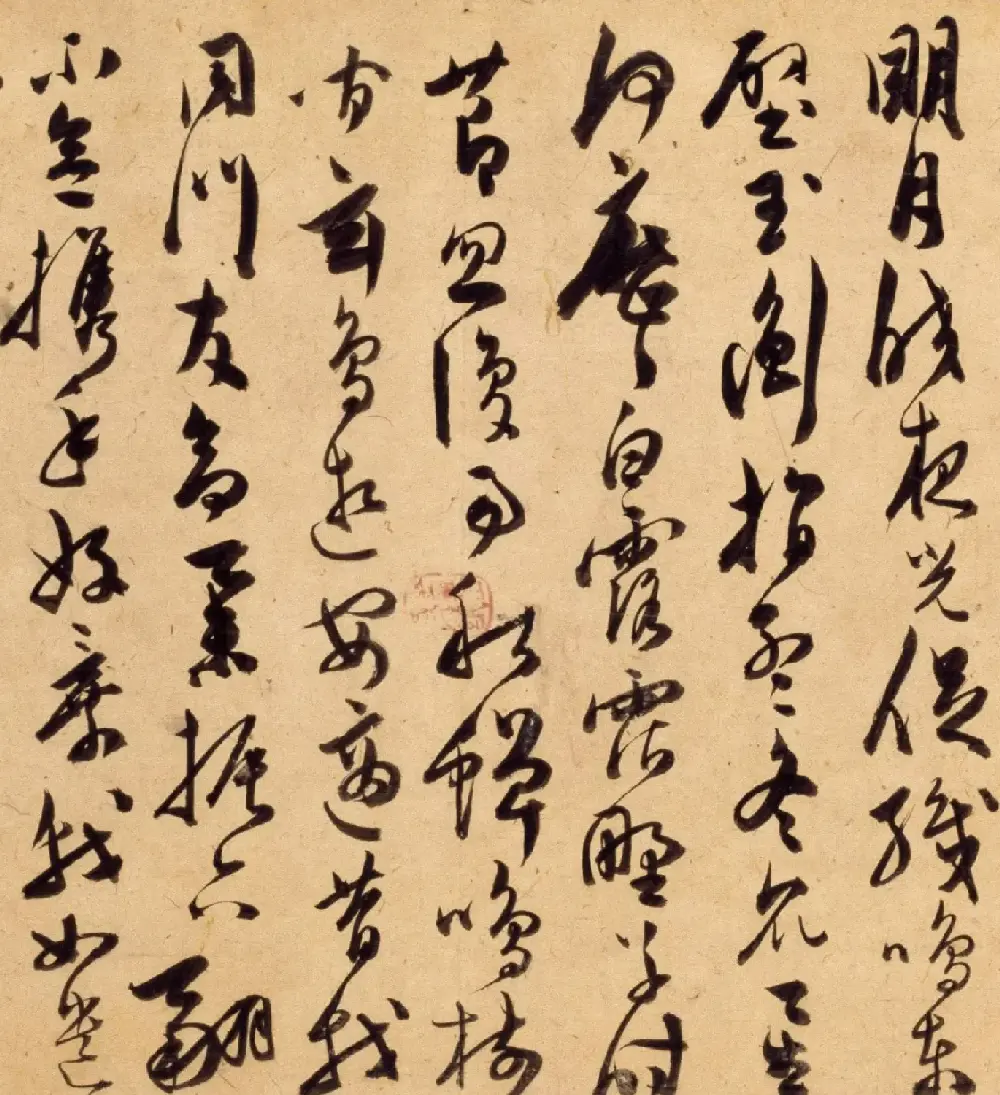 明月皎夜光促織鳴東
壁玉衡指孟冬眾星
何歷々白露霑野草時
節忽復易秋蟬鳴樹
間玄鳥逝安適昔我
同門友高舉振六翮
不念攜手好棄我如遺